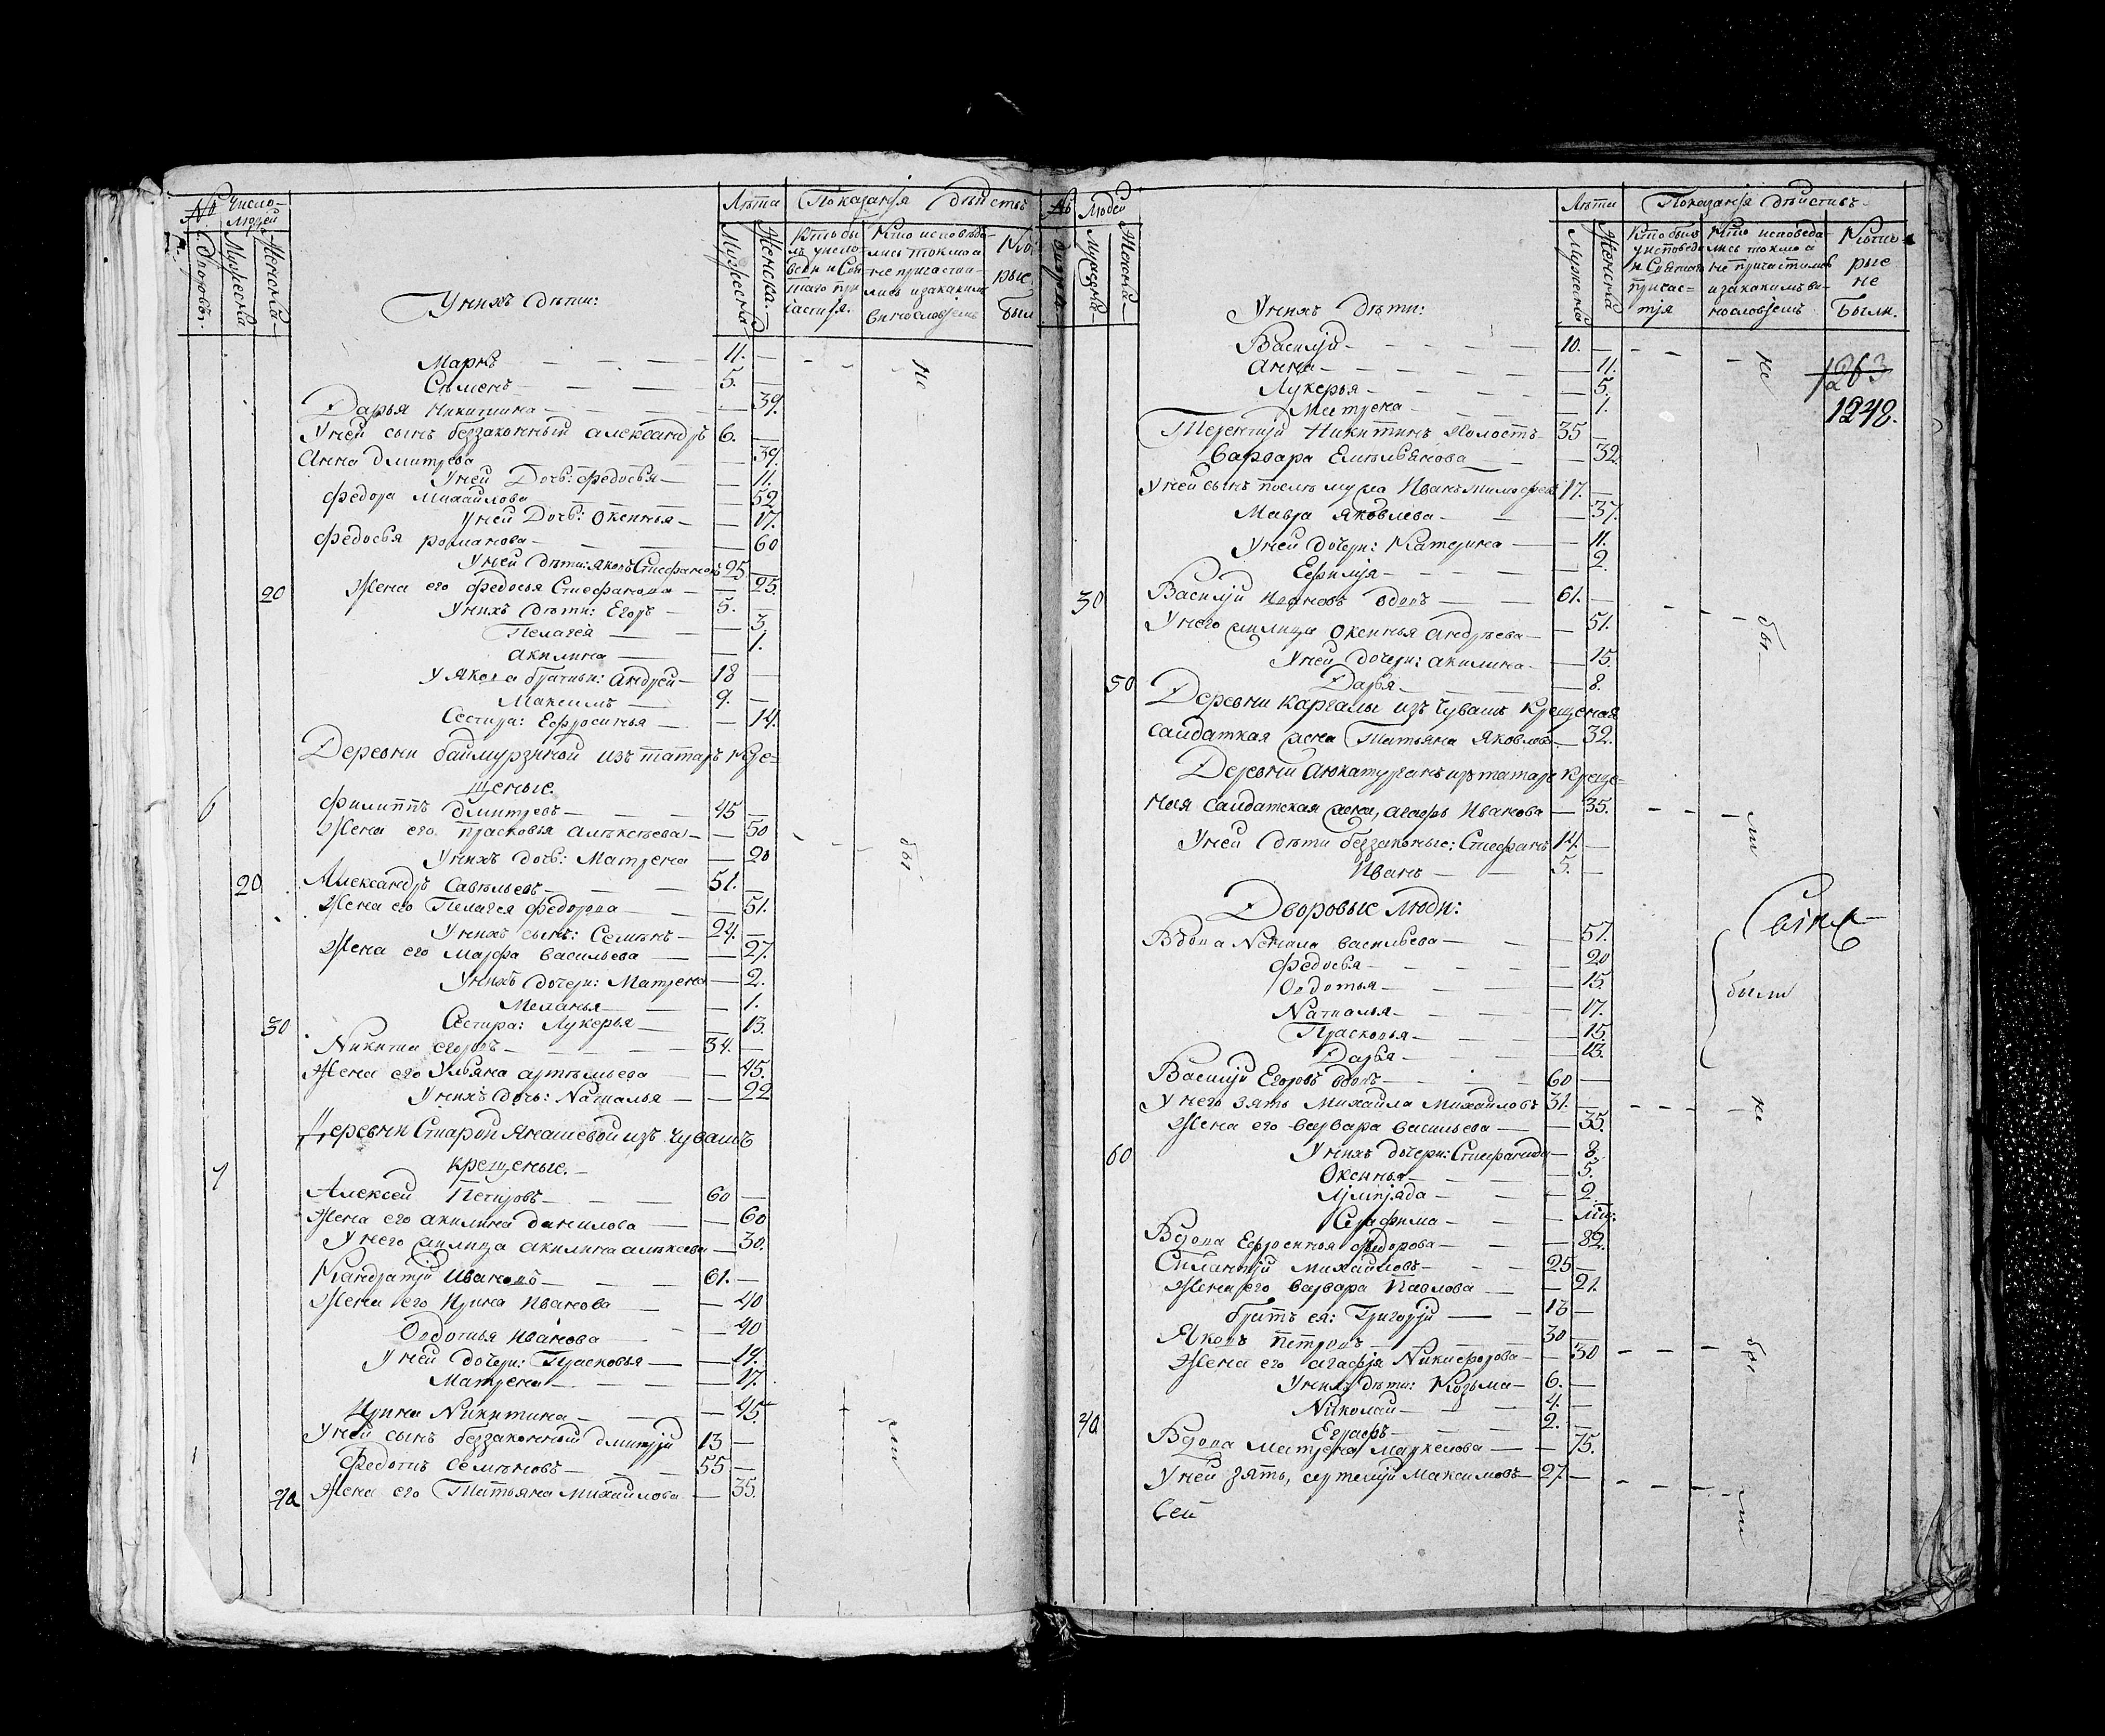 № Число людей Лѣта Показанія дѣйствъ
дворовъ. Мужеска Женска Мужеска Женска.
Кто исповѣда-
лись токмо а
не причасти-
лись и за какимъ
винословіемъ
рые
У нихъ дѣти:
Маркъ 11.
Сѣменъ 5.
не
Дарья Никитина 39.
У ней сынъ беззаконный александръ 6.
Анна дмитрева 39.
У ней Дочь: федосья 11.
федора михайлова 52
У ней Дочь: Оксинья 17.
федосья романова 60
У ней дѣти: яковъ Стефановъ 25
20 Жена его федосья Стефанова 25.
У нихъ дѣти: Егоръ 5.
Пелагея 3.
акилина 1.
У якова братьи: Андрей 18
Максимъ 9.
Сестра: Ефросинья 14.
Деревни баймурзиной изъ татаръ кре-
щеные.
6 филиппъ дмитревъ 45
Жена его прасковья алѣксѣева 50
бы
У нихъ дочь: Матрена 20
20 Александръ савѣльевъ 51.
Жена его Пелагея федорова 51.
У нихъ сынъ: Семѣнъ 24.
Жена его марфа васильева 27.
У нихъ дочери: Матрена 2.
Меланья 1.
30 Сестра: Лукерья 13.
Никита егоровъ 34.
Жена его Ульяна артѣмьева 45.
У нихъ дочь: Наталья 22
Деревни Старой Янашевой изъ чувашъ
крещеные.
7 Алексей Петровъ 60
Жена его акилина данилова 60
У него акилина алѣксеева 30.
Кандратій Ивановъ 61.
Жена его Ирина Иванова 40
Овдотья иванова 40
У ней дочери: Прасковья 19.
Матрена 17.
Ирина Никитина 45
ли
У ней сынъ беззаконный дмитрій 13
Федотъ семѣновъ 55
40 Жена его Татьяна михайлова 35.
№ Людей Лѣта Показанія дѣйствъ
Мужеска Женска Мужеска Женска
Кто былъ Кто исповеда- Кото-
у исповеди лись токмо а
и Святаго не причастились рые
причас- и за какимъ ви- не
тія нословіемъ Были.
У нихъ дѣти:
Василій 10.
не
1263
Анна 11.
Лукерья 5.
Матрена 1.
1242.
Терентій Никитинъ холостъ 35
Варвара Емѣльянова 32.
У ней сынъ Иванъ 17.
Мавра яковлева 37.
У ней дочери: Катерина 11.
Ефимія 2.
30 Василій ивановъ вдовъ 61.
бы
У него Оксинья андрѣева 51.
У ней дочери: акилина 15.
50 Дарья 8.
Деревни Каргалы изъ чувашъ крещеная
салдатская жена Татьяна Яковлева 32.
Деревни изъ татаръ креще-
ная салдатская жена, агафья Иванова 35.
ли
У ней дѣти беззаконые: Стефанъ 14.
Иванъ 5.
Дворовые люди:
Вдова васильева 57.
Федосья 20
Овдотья 15.
были
Наталья 17.
Прасковья 15.
Дарья 13.
Василій Егоровъ вдовъ 60
У него зять михайла михайловъ 31.
не
Жена его варвара васильева 35.
60 У нихъ дочери: Стефанида 8.
Оксинья 5.
2.
Серафима
Вдова Ефросинья федорова 82.
Силантій михайловъ 25
Жена его варвара Павлова 21.
братъ ея: Григорій 13
Яковъ петровъ 30
Жена его агафія Никифорова 30
бы
У нихъ дѣти: Козьма 6.
Николай 4.
40 Еграфъ 2.
Вдова матрена маркелова 75.
У ней зять, артемій Максимовъ 27
ли
Сей